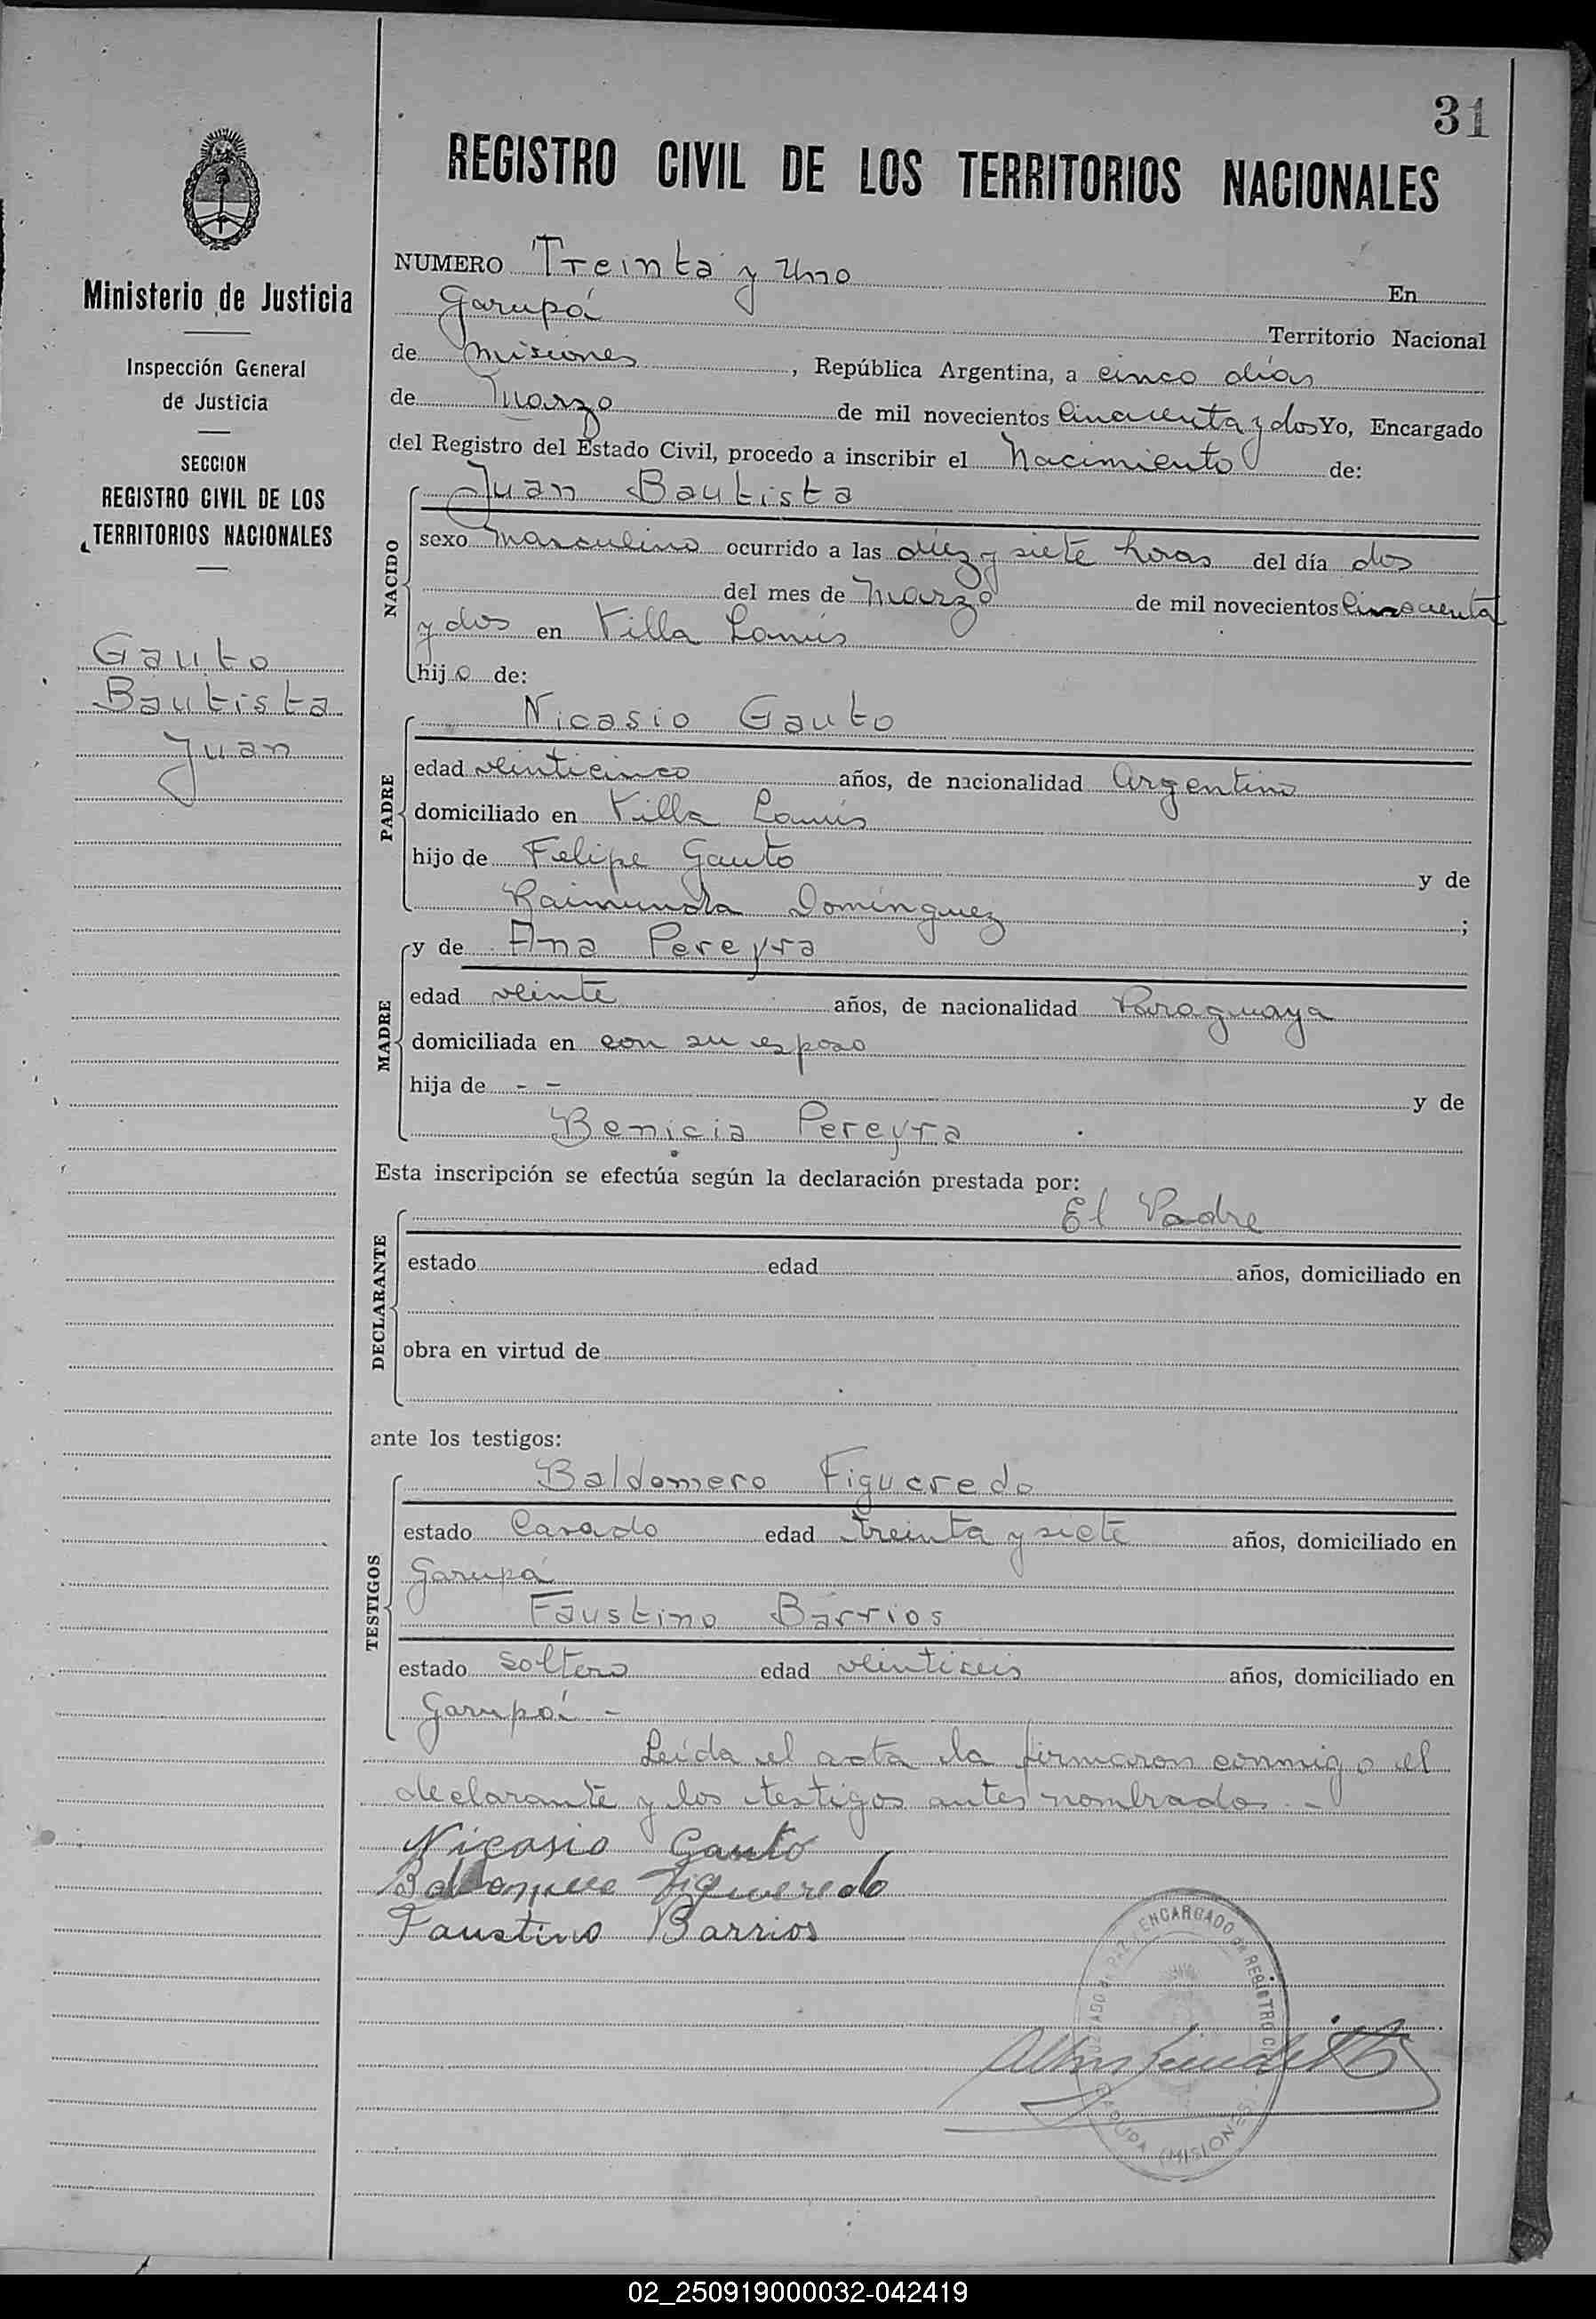 31
REGISTRO CIVIL DE LOS TERRITORIOS NACIONALES
Ministerio de Justicia
Inspección General
de Justicia
SECCION
REGISTRO CIVIL DE LOS
TERRITORIOS NACIONALES
Gauto
Bautista
Juan
NUMERO Treinta y Uno En
Garupá Territorio Nacional
de Misiones, República Argentina, a cinco días
de Marzo de mil novecientos Cincuenta y dos Yo, Encargado
del Registro del Estado Civil, procedo a inscribir el Nacimiento de:
NACIDO
Juan Bautista
sexo Masculino ocurrido a las diez y siete horas del día dos
del mes de Marzo de mil novecientos Cincuenta
y dos en Villa Lanús
hijo de:
PADRE
Nicasio Gauto
edad veinticinco años, de nacionalidad Argentino
domiciliado en Villa Lanús
hijo de Felipe Gauto y de
Raimunda Domínguez ;
MADRE
y de Ana Pereyra
edad veinte años, de nacionalidad Paraguaya
domiciliada en con su esposo
hija de - - y de
Benicia Pereyra
Esta inscripción se efectúa según la declaración prestada por:
DECLARANTE
El Padre
estado edad años, domiciliado en
obra en virtud de
ante los testigos:
TESTIGOS
Baldomero Figueredo
estado Casado edad treinta y siete años, domiciliado en
Garupá
Faustino Barrios
estado soltero edad veintiseis años, domiciliado en
Garupá -
Leída el acta la firmaron conmigo el
declarante y los testigos antes nombrados. -
Nicasio Gauto
Baldomero Figueredo
Faustino Barrios
JUZGADO DE PAZ Y ENCARGADO DE REGISTRO CIVIL
GARUPA (MISIONES)
02_250919000032-042419